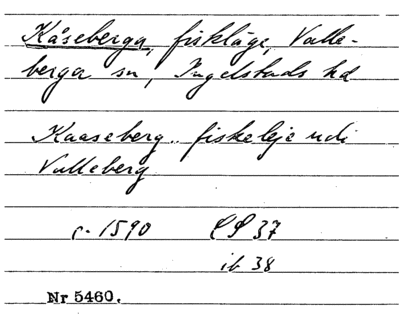 Kåseberga, fiskläge, Valle-
berga sn, Ingelstads hd
Kaaseberg.. fiskeleje udi
Valleberg
c. 1590 LP 37
ib 38
Nr 5460.